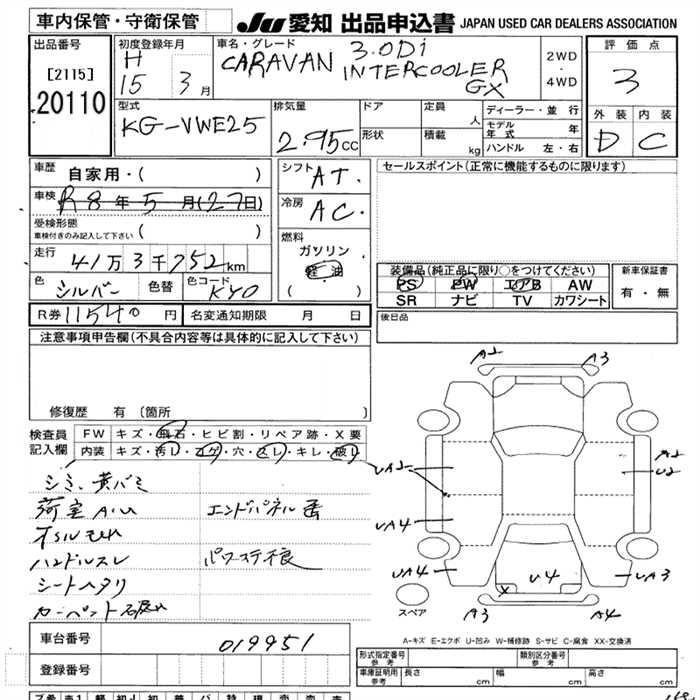 車内保管・守衛保管
JU 愛知 出品申込書 JAPAN USED CAR DEALERS ASSOCIATION
出品番号
[2115]
20110
初度登録年月
H
15 3月
車名・グレード
CARAVAN 3.0Di
INTERCOOLER
GX
2WD
・
4WD
評価点
3
外装 内装
D C
型式
KG-VWE25
排気量
2.95cc
ドア
形状
定員
人
積載
kg
ディーラー・並行
モデル年式 年
ハンドル 左・右
車歴
自家用・( )
車検
R8年5月(27日)
受検形態
車検付きのみ記入して下さい
( )
走行
41万3千752km
色
シルバー
色替
色コード
KY0
R券 11540円
名変通知期限 月 日
シフト
AT.
冷房
AC.
燃料
ガソリン
軽油
( )
セールスポイント(正常に機能するものに限ります)
装備品(純正品に限り○をつけてください)
PS PW エアB AW
SR ナビ TV カワシート
新車保証書
有・無
後日品
注意事項申告欄(不具合内容等は具体的に記入して下さい)
修復歴 有 〔箇所 〕
検査員
記入欄
FW キズ・飛石・ヒビ割・リペア跡・X要
内装 キズ・汚レ・コゲ・穴・スレ・キレ・破レ
シミ、黄バミ
荷室A.U
エンドパネル歪
ハンドルスレ
パワステ不良
シートヘタリ
A2 A3
UA2
A2
U2
UA4
UA4
U4
X
UA3
A3 A4
スペア
A-キズ E-エクボ U-凹み W-補修跡 S-サビ C-腐食 XX-交換済
車台番号
019951
登録番号
形式指定番号
参考
類別区分番号
参考
車庫証明用
参考
長さ cm
幅 cm
高さ cm